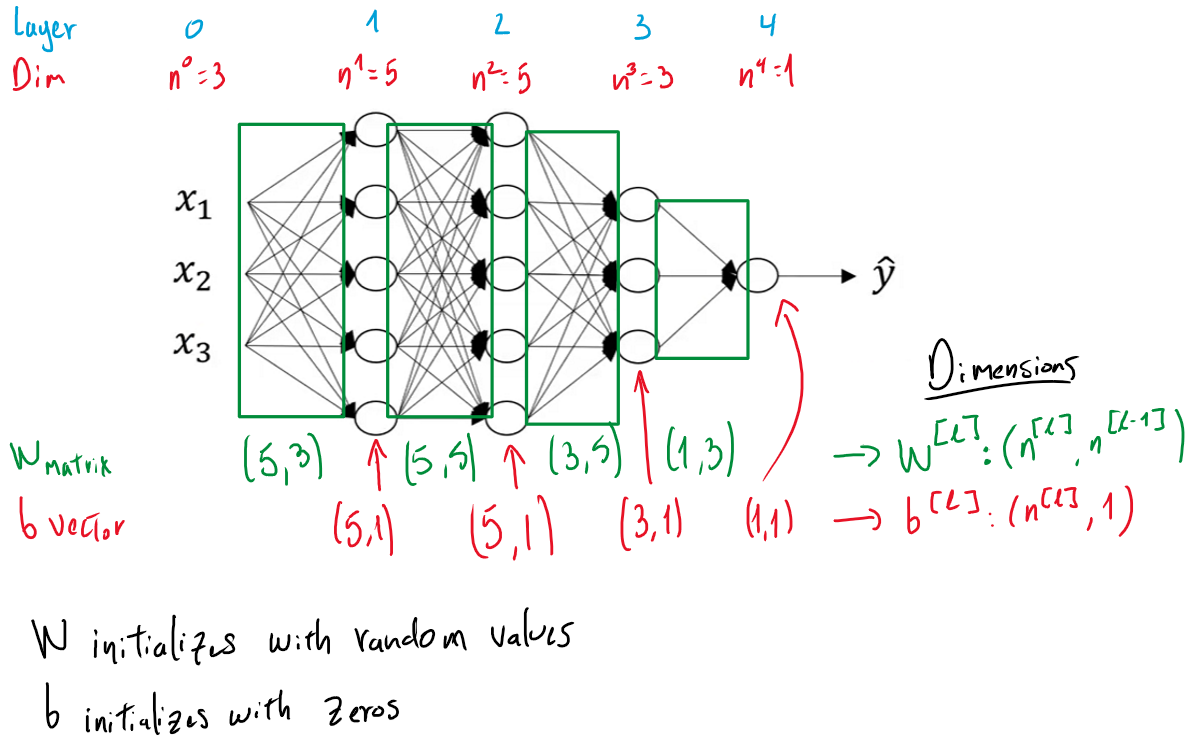 Layer 0 1 2 3 4
Dim n⁰=3 n¹=5 n²=5 n³=3 n⁴=1
x₁
x₂
ŷ
x₃
Dimensions
W matrix (5,3) (5,5) (3,5) (1,3) → W^[l] : (n^[l], n^[l-1])
b vector (5,1) (5,1) (3,1) (1,1) → b^[l] : (n^[l], 1)
W initializes with random values
b initializes with zeros